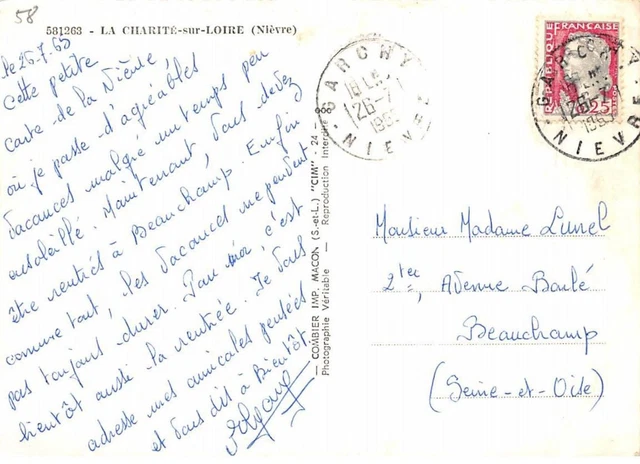 58
581263 - LA CHARITÉ-sur-LOIRE (Nièvre)
le 26.7.65
Cette petite
carte de la Nièvre
où je passe d'agréables
vacances malgré un temps peu
ensoleillé. Maintenant vous devez
être rentrés à Beauchamp. Enfin
comme tout, les vacances ne peuvent
pas toujours durer. Pour moi, c'est
bientôt aussi la rentrée. Je vous
adresse mes amicales pensées
et vous dit à Bientôt.
COMBIER IMP. MACON (S.-et-L.) "CIM" - 24 - 8
Photographie Véritable - Reproduction Interdite
GARCHY
18 H
26-7
NIEVRE
REPUBLIQUE FRANÇAISE
0,25
GARCHY
26-7
NIEVRE
Monsieur Madame Lunel
2ter, Avenue Baulé
Beauchamp
(Seine-et-Oise)